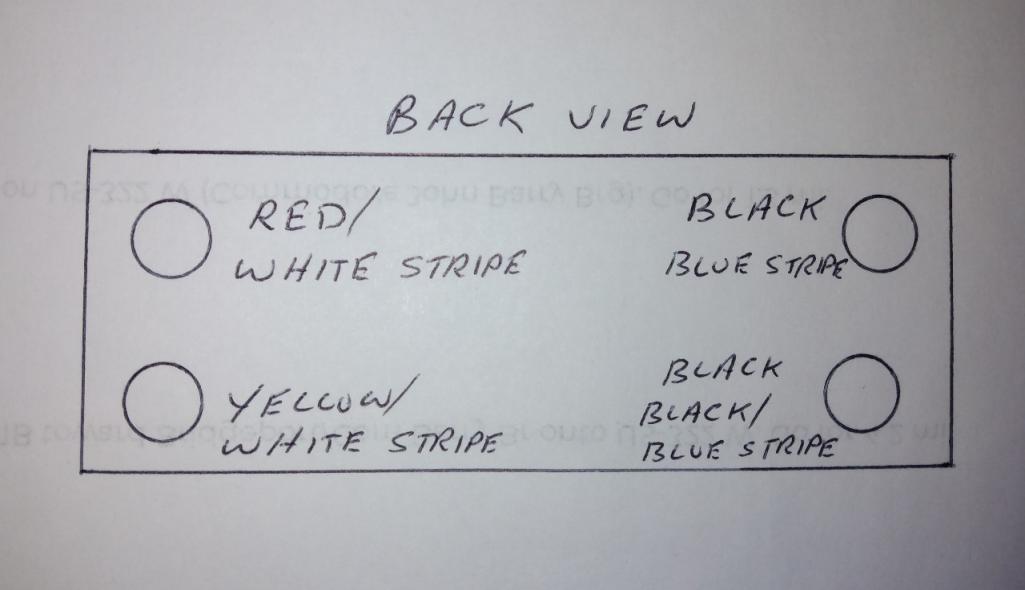 BACK VIEW
RED/
WHITE STRIPE
BLACK
BLUE STRIPE
YELLOW/
WHITE STRIPE
BLACK
BLACK/
BLUE STRIPE